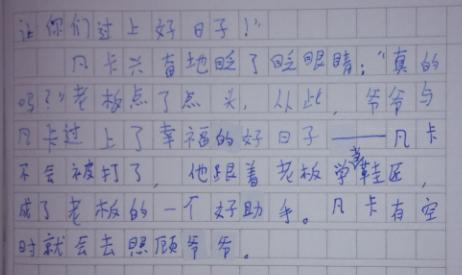 让你们过上好日子！”
凡卡兴奋地眨了眨眼睛：“真的
吗？”老板点了点头，从此，爷爷与
凡卡过上了幸福的好日子——凡卡
不会被打了，他跟着老板学着鞋匠，
成了老板的一个好助手。凡卡有空
时就会去照顾爷爷。